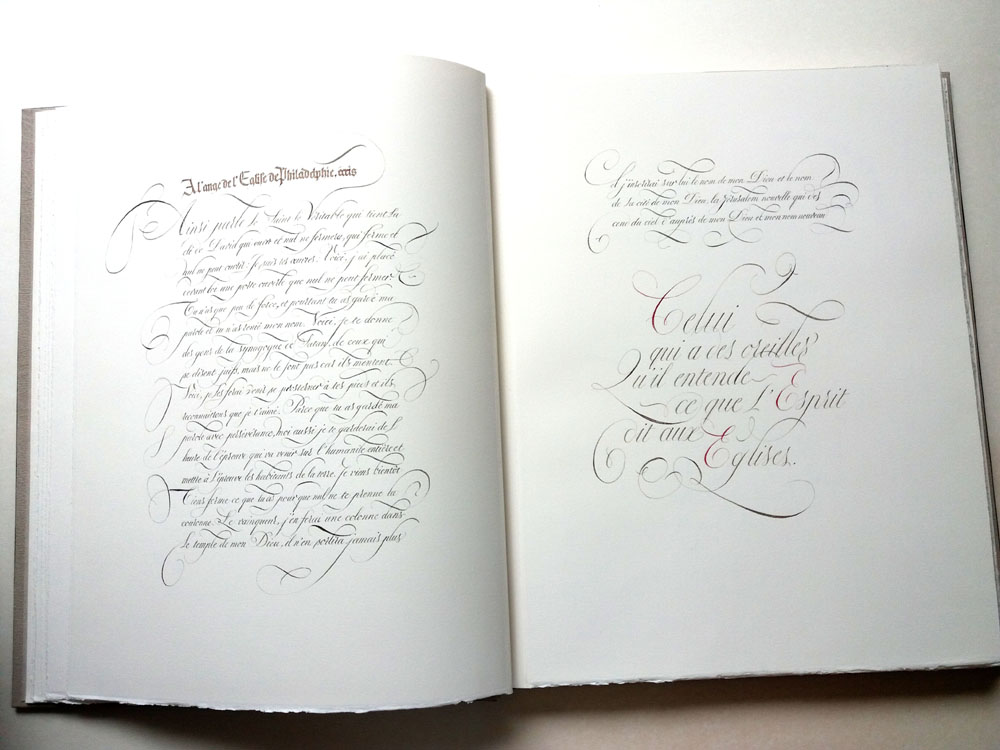 A l'ange de l'Eglise de Philadelphie, écris
Ainsi parle le Saint le Véritable qui tient la
clé de David qui ouvre et nul ne fermera, qui ferme et
nul ne peut ouvrir: Je sais tes œuvres. Voici, j'ai placé
devant toi une porte ouverte que nul ne peut fermer.
Tu n'as que peu de force, et pourtant tu as gardé ma
parole et tu n'as renié mon nom. Voici, je te donne
des gens de la synagogue de Satan, de ceux qui
se disent juifs, mais ne le sont pas car ils mentent.
Voici, je les ferai venir se prosterner à tes pieds et ils
reconnaîtront que je t'ai aimé. Parce que tu as gardé ma
parole avec persévérance, moi aussi je te garderai de l
heure de l'épreuve qui va venir sur l'humanité entière et
mettre à l'épreuve les habitants de la terre. Je viens bientôt
Tiens ferme ce que tu as pour que nul ne te prenne ta
couronne. Le vainqueur, j'en ferai une colonne dans
le temple de mon Dieu, il n'en sortira jamais plus
et j'inscrirai sur lui le nom de mon Dieu et le nom
de la cité de mon Dieu, la Jérusalem nouvelle qui des
cend du ciel d'auprès de mon Dieu et mon nom nouveau
Celui
qui a des oreilles
Qu'il entende
ce que L'Esprit
dit aux
Eglises.